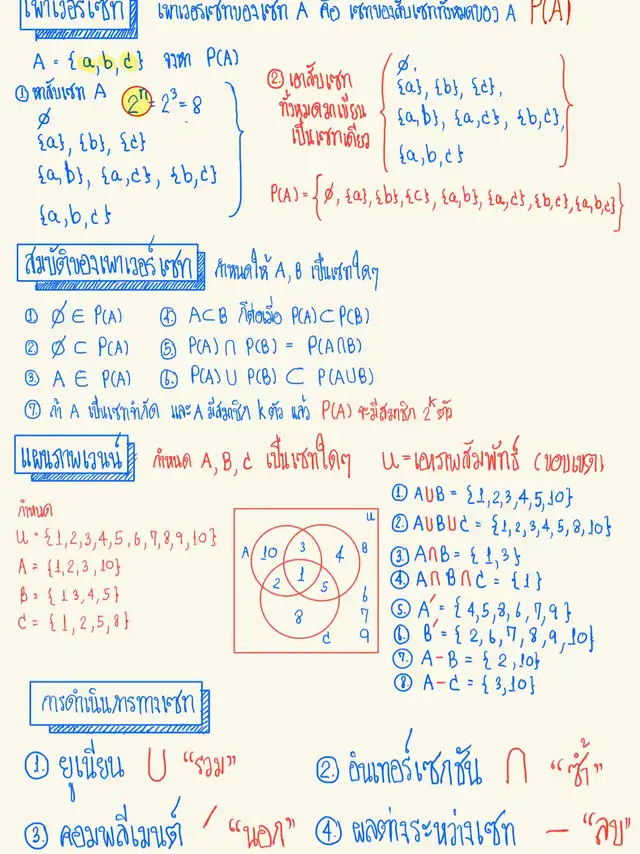 เพาเวอร์เซท เพาเวอร์เซทของเซท A คือ เซทของสับเซททั้งหมดของ A P(A)
A = {a,b,c} จงหา P(A)
① หาสับเซท A 2ⁿ = 2³ = 8
∅
{a}, {b}, {c}
{a,b}, {a,c}, {b,c}
{a,b,c}
2. เอาสับเซท
ทั้งหมดมาเขียน
เป็นเซทเดียว
∅,
{a}, {b}, {c},
{a,b}, {a,c}, {b,c},
{a,b,c}
P(A) = {∅, {a}, {b}, {c}, {a,b}, {a,c}, {b,c}, {a,b,c}}
สมบัติของเพาเวอร์เซท กำหนดให้ A, B เป็นเซทใดๆ
① ∅ ∈ P(A) ④. A⊂B ก็ต่อเมื่อ P(A)⊂P(B)
② ∅ ⊂ P(A) ⑤. P(A) ∩ P(B) = P(A∩B)
③. A ∈ P(A) ⑥. P(A) ∪ P(B) ⊂ P(A∪B)
⑦ ถ้า A เป็นเซทจำกัด และ A มีสมาชิก k ตัว แล้ว P(A) จะมีสมาชิก 2ᵏ ตัว
แผนภาพเวนน์ กำหนด A, B, C เป็นเซทใดๆ U = เอกภพสัมพัทธ์ (ขอบเขต)
กำหนด
U = {1,2,3,4,5,6,7,8,9,10}
A = {1,2,3,10}
B = {1 3,4,5}
C = {1,2,5,8}
U
A 10 3 4 8
1
2 5
6
8 7
C 9
① A∪B = {1,2,3,4,5,10}
②. A∪B∪C = {1,2,3,4,5,8,10}
③. A∩B = {1,3}
④. A∩B∩C = {1}
⑤. A′ = {4,5,8,6,7,9}
⑥. B′ = {2,6,7,8,9,10}
⑦. A-B = {2,10}
⑧ A-C = {3,10}
การดำเนินการทางเซท
①. ยูเนียน ∪ "รวม" ②. อินเทอร์เซกชัน ∩ "ซ้ำ"
③. คอมพลีเมนต์ ′ "นอก" ④. ผลต่างระหว่างเซท — "ลบ"